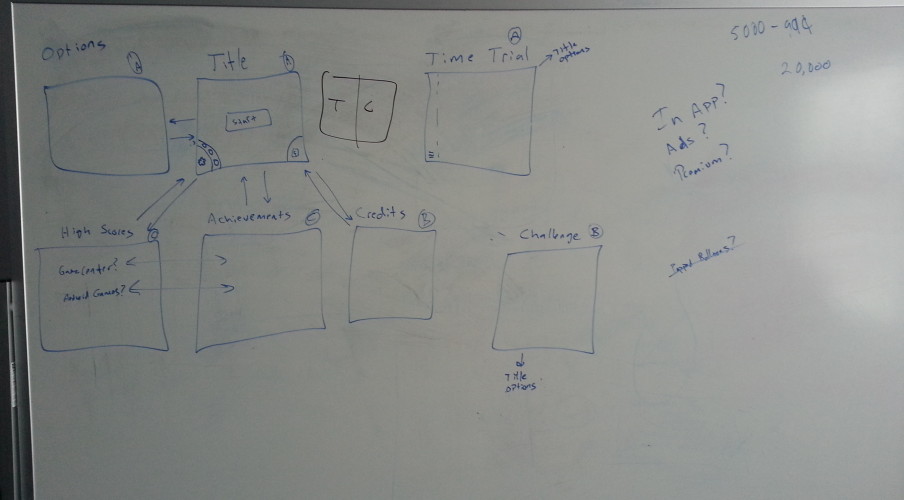 Options
A
Title
A
Start
T C
Time Trial
A
Title
options
5000 - 99¢
20,000
In App?
Ads?
Premium?
High Scores
C
Gamecenter?
Android Games?
Achievements
C
Credits
B
Challenge
B
Title
options